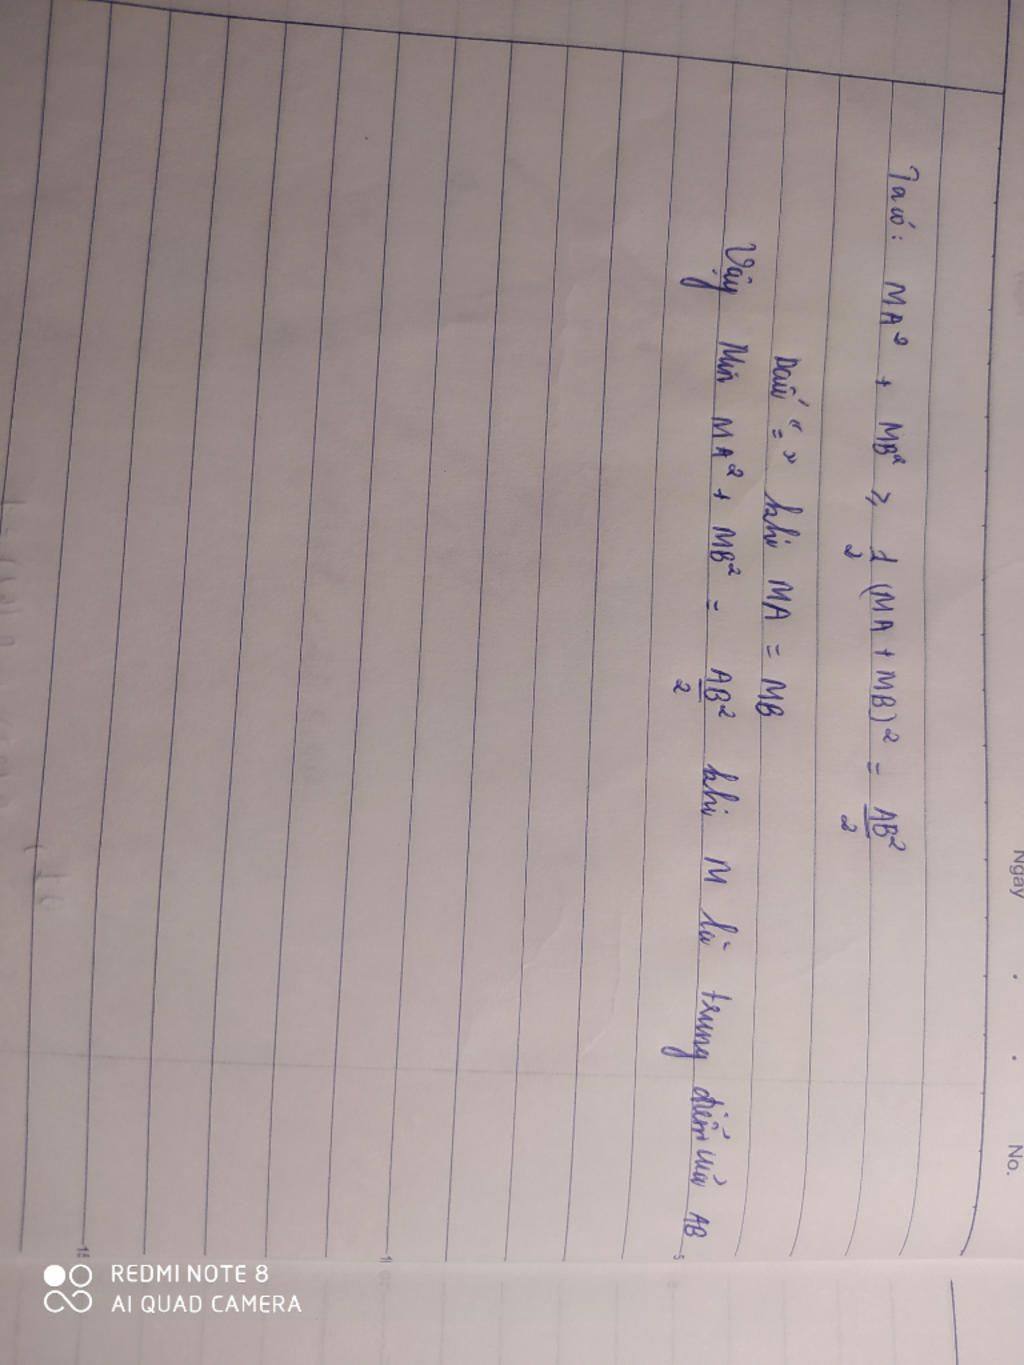 Ngày . . No.
Ta có: MA² + MB² ≥ 1/2 (MA + MB)² = AB²/2
Dấu "=" khi MA = MB
Vậy Min MA² + MB² = AB²/2 khi M là trung điểm của AB
5
10
15
REDMI NOTE 8
AI QUAD CAMERA